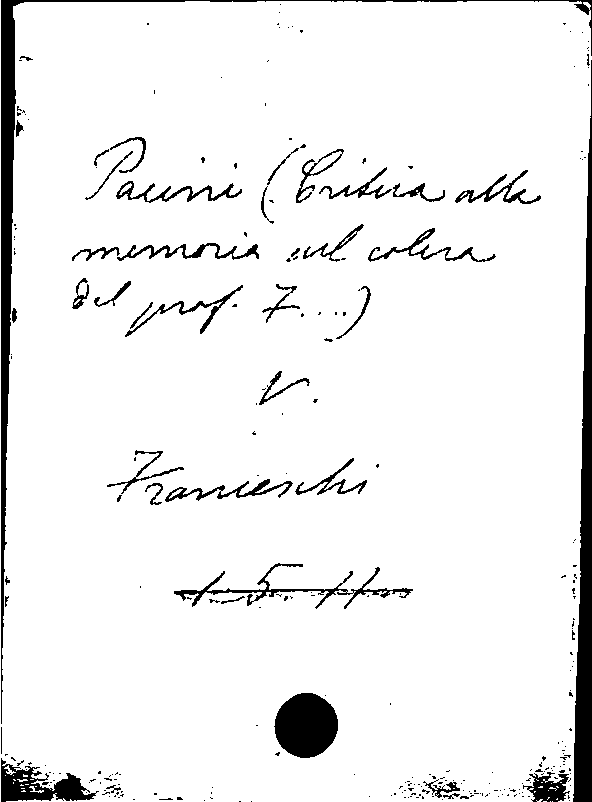 Pacini (Critica alla
memoria sul colera
del prof. F....)
V.
Franceschi
1. 5. 11